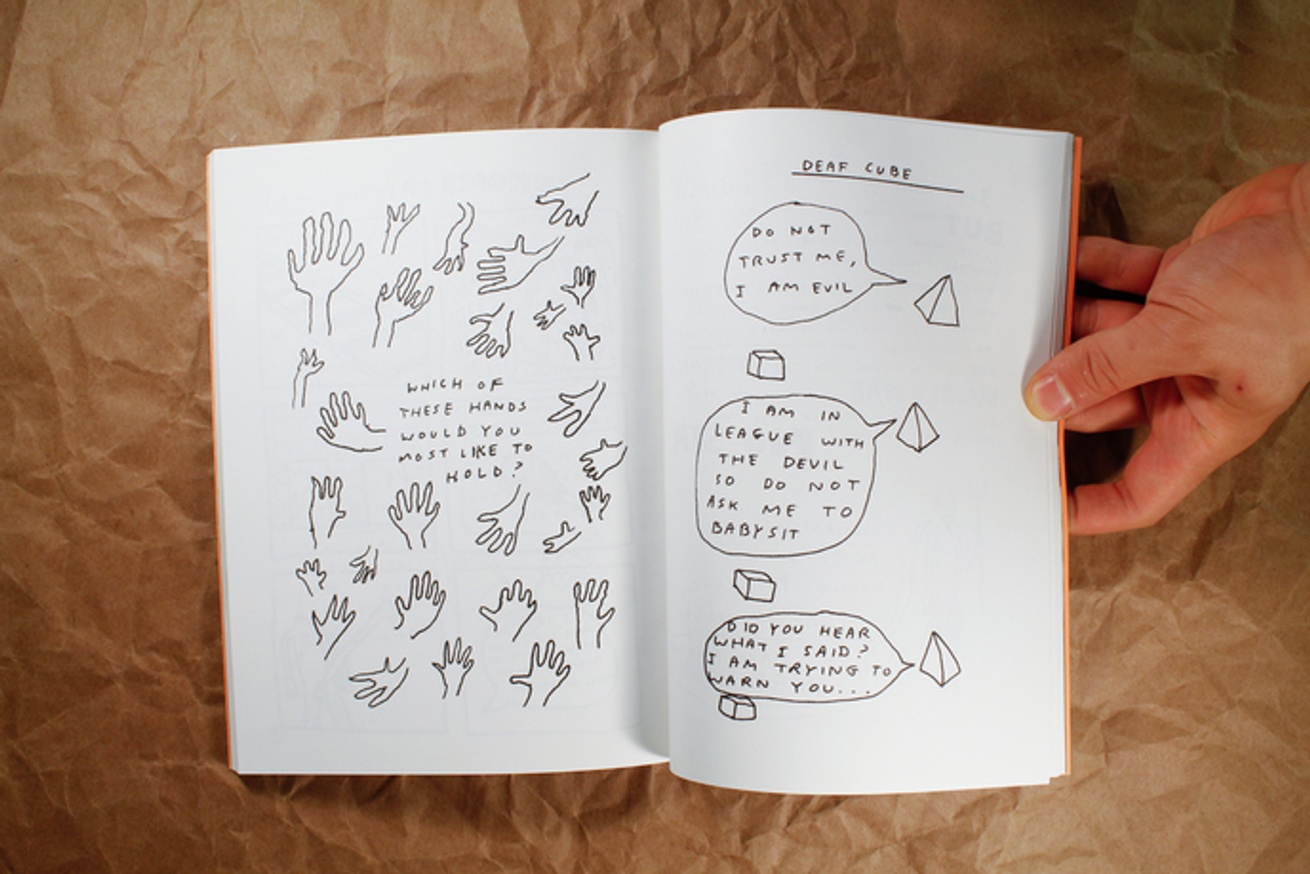 WHICH OF
THESE HANDS
WOULD YOU
MOST LIKE TO
HOLD?
DEAF CUBE
DO NOT
TRUST ME,
I AM EVIL
I AM IN
LEAGUE WITH
THE DEVIL
SO DO NOT
ASK ME TO
BABYSIT
DID YOU HEAR
WHAT I SAID?
I AM TRYING TO
WARN YOU...